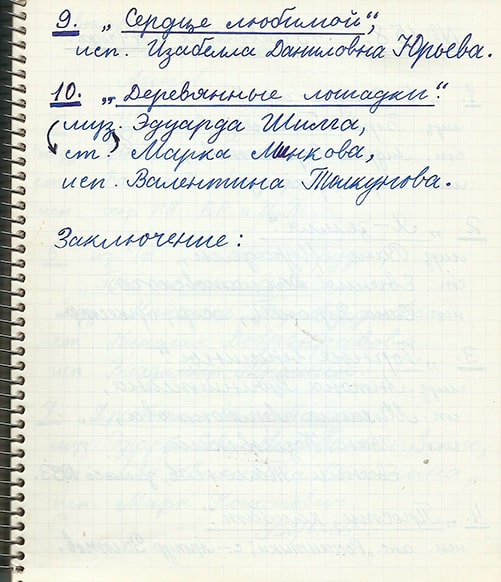 9. „Сердце любимой“,
исп. Изабелла Даниловна Юрьева.
10. „Деревянные лошадки“.
муз. Эдуарда
ст. Марка Минкова,
исп. Валентина Толкунова.
Заключение: